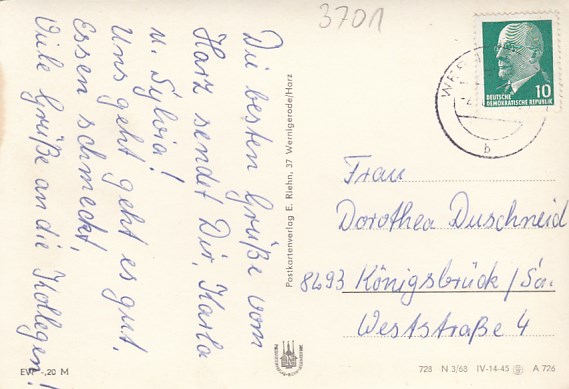 3701
Die besten Grüße vom
Harz sendet Dir, Karla
u. Sylvia!
Uns geht es gut.
Essen schmeckt.
Viele Grüße an die Kollegen!
EVP -,20 M
Postkartenverlag E. Riehn, 37 Wernigerode/Harz
DEUTSCHE
DEMOKRATISCHE REPUBLIK
10
WER
b
Frau
Dorothea Duschneid
8293 Königsbrück/Sa.
Weststraße 4
728 N 3/68 IV-14-45 A 726